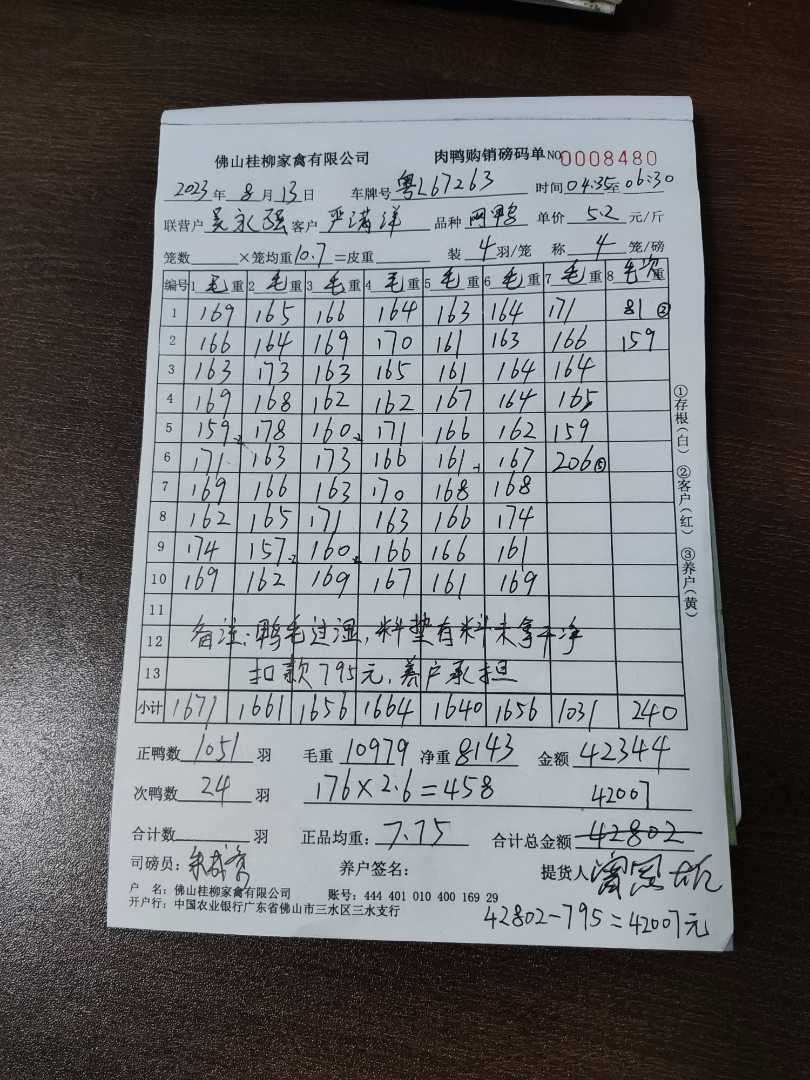 佛山桂柳家禽有限公司 肉鸭购销磅码单 NO 0008480
2023年 8月 13日 车牌号 粤L67263 时间 04:35至06:30
联营户 吴永强 客户 严满洋 品种 网鸭 单价 5.2 元/斤
笼数 ×笼均重10.7=皮重 装 4 羽/笼 称 4 笼/磅
编号 1 毛重 2 毛重 3 毛重 4 毛重 5 毛重 6 毛重 7 毛重 8 毛次重
1 169 165 166 164 163 164 171 81②
2 166 164 169 170 161 163 166 159
3 163 173 163 165 161 164 164
4 169 168 162 162 167 164 165
5 159-2 178 160-2 171 166 162 159
6 171 163 173 166 161-1 167 206⑤
7 169 166 163 170 168 168
8 162 165 171 163 166 174
9 174 157-2 160-2 166 166 161
10 169 162 169 167 161 169
11
12 备注:鸭毛过湿,料垫有料未拿干净
13 扣款795元,养户承担
小计 1671 1661 1656 1664 1640 1656 1031 240
正鸭数 1051 羽 毛重 10979 净重 8143 金额 42344
次鸭数 24 羽 176×2.6=458 42007
合计数 羽 正品均重: 7.75 合计总金额 42802
司磅员: 养户签名: 提货人
户 名:佛山桂柳家禽有限公司 账号:444 401 010 400 169 29
开户行:中国农业银行广东省佛山市三水区三水支行
42802-795=42007元
①存根(白) ②客户(红) ③养户(黄)